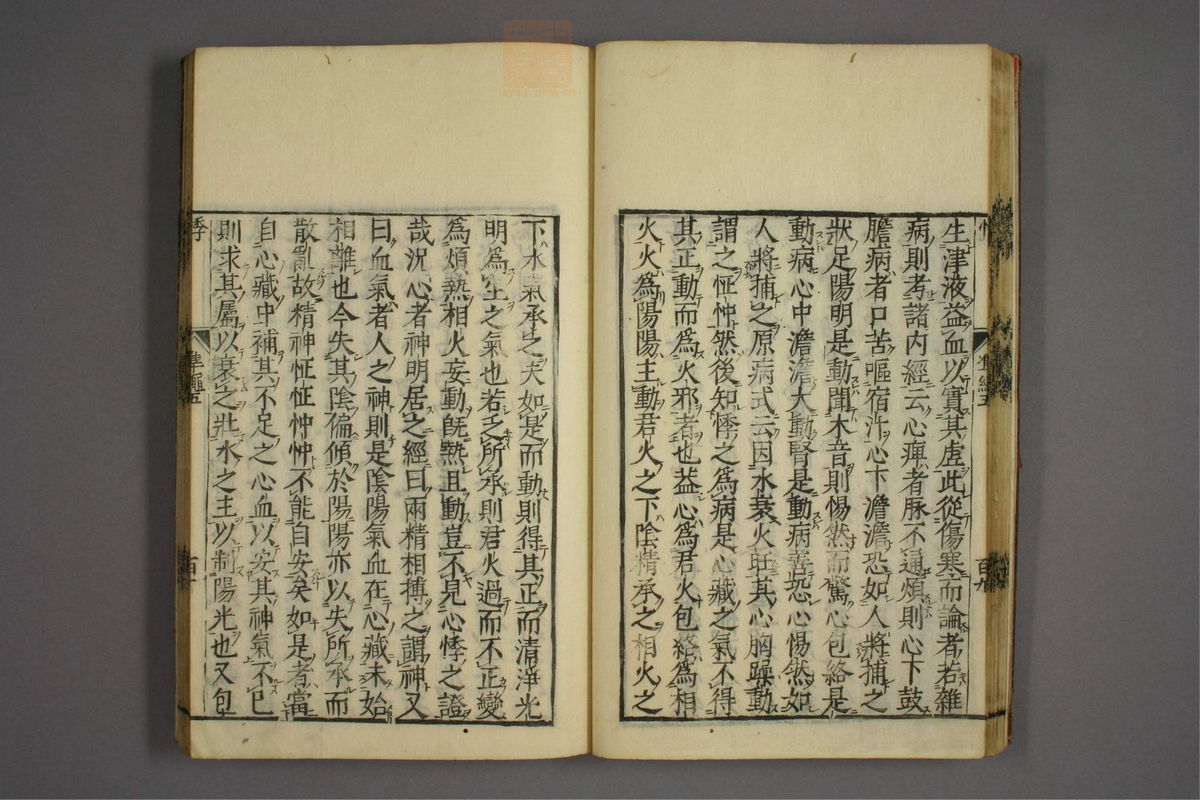 生津液益血以實其虛此從傷寒而論者若雜
病則考諸內經云心痺者脉不通煩則心下鼓
膽病者口苦嘔宿汁心下澹澹恐如人將捕之
狀足陽明是動聞木音則惕然而驚心包絡是
動病心中澹澹大動腎是動病善恐心惕然如
人將捕之原病式云因水衰火旺其心胸躁動
謂之怔忡然後知悸之為病是心藏之氣不得
其正動而為火邪者也葢心為君火包絡為相
火火為陽陽主動君火之下陰精承之相火之
下水氣承之夫如是而動則得其正而清淨光
明為生之氣也若乏所承則君火過而不正變
為煩熱相火妄動旣熱且動豈不見心悸之證
哉況心者神明居之經曰兩精相搏之謂神又
曰血氣者人之神則是陰陽氣血在心藏未始
相離也今失其陰偏傾於陽陽亦以失所承而
散亂故精神怔怔忡忡不能自安矣如是者當
自心藏中補其不足之心血以安其神氣不已
則求其屬以衰之壯水之主以制陽光也又包
悸
準繩五
百十